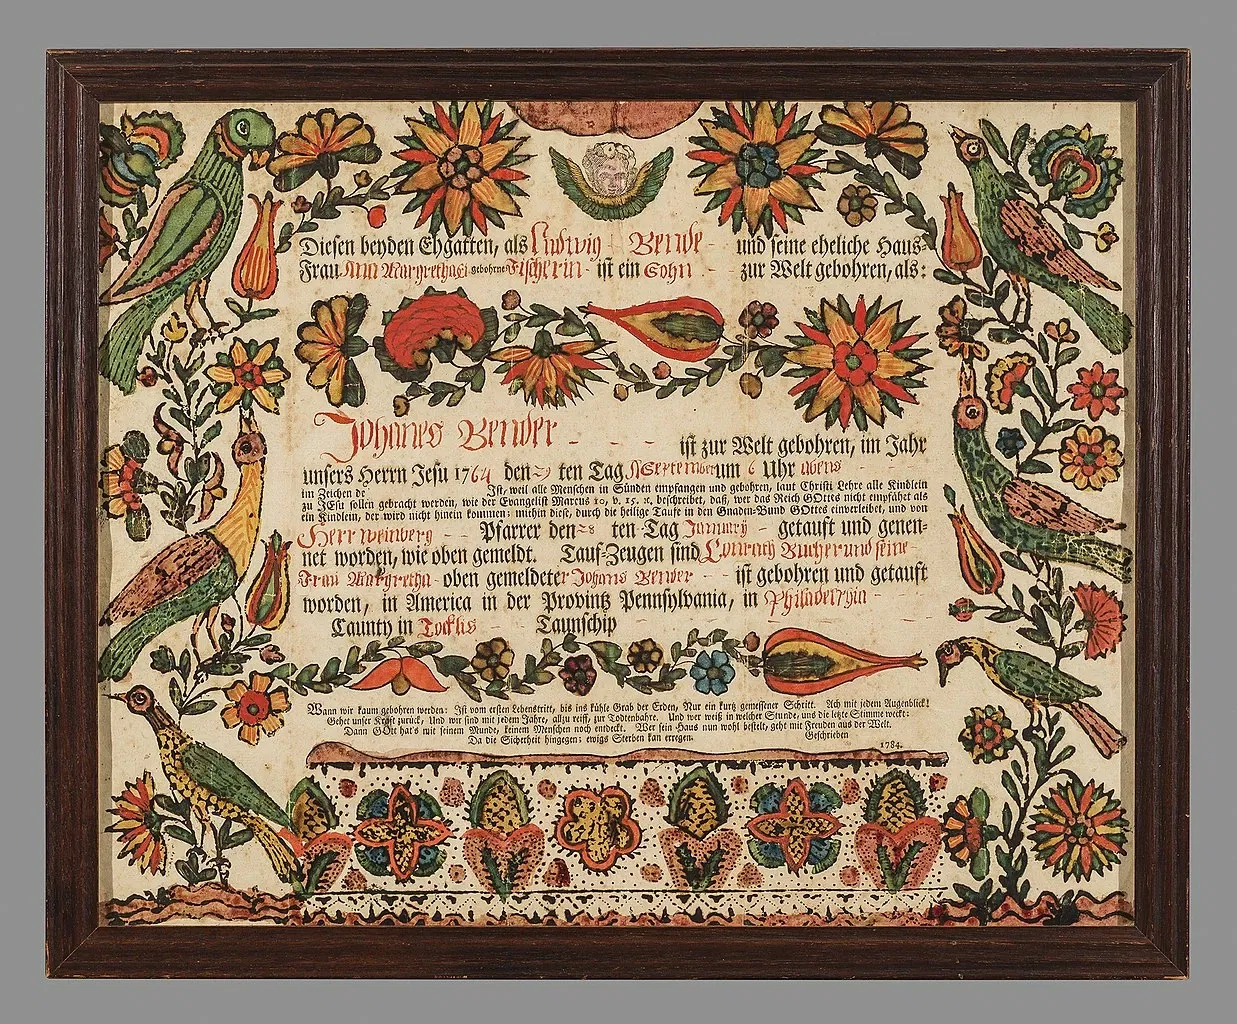 Diesen beyden Ehgatten, als Ludwig Bende und seine eheliche Haus-
Frau Ann Margretha gebohrne Fischerin ist ein Sohn zur Welt gebohren, als:
Johanes Bender ist zur Welt gebohren, im Jahr
unsers Herrn Jesu 1764 den 29 ten Tag September um 6 Uhr abens
im Zeichen de Ist, weil alle Menschen in Sünden empfangen und gebohren, laut Christi Lehre alle Kindlein
zu JEsu sollen gebracht werden, wie der Evangelist Marcus 10, v. 15. x. beschreibet, daß, wer das Reich GOttes nicht empfähet als
ein Kindlein, der wird nicht hinein kommen: mithin diese, durch die heilige Taufe in den Gnaden-Bund GOttes einverleibet, und von
Herr Weinberg Pfarrer den 28 ten Tag January getauft und genen-
net worden, wie oben gemeldt. Tauf-Zeugen sind Conrath Bucher und seine
Frau Margretha oben gemeldeter Johans Bender ist gebohren und getauft
worden, in America in der Provintz Pennsylvania, in Philadelphia
Caunty in Taunschip
Wann wir kaum gebohren werden: Ist vom ersten Lebenstritt, bis ins kühle Grab der Erden, Nur ein kurtz gemessener Schritt. Ach mit jedem Augenblick!
Gehet unser Kraft zurück, Und wir sind mit jedem Jahre, allzu reiff, zur Todtenbahre. Und wer weiß in welcher Stunde, uns die letzte Stimme weckt:
Dann GOtt hat's mit seinem Munde, keinem Menschen noch entdeckt. Wer sein Haus nun wohl bestelt, geht mit Freuden aus der Welt.
Da die Sicherheit hingegen: ewigs Sterben kan erregen. Geschrieben
1784.